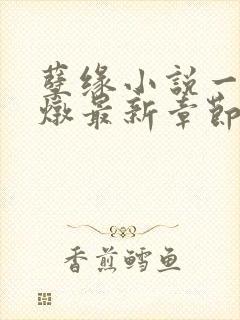 孽缘小说一
燉最新章節
香煎鳕鱼